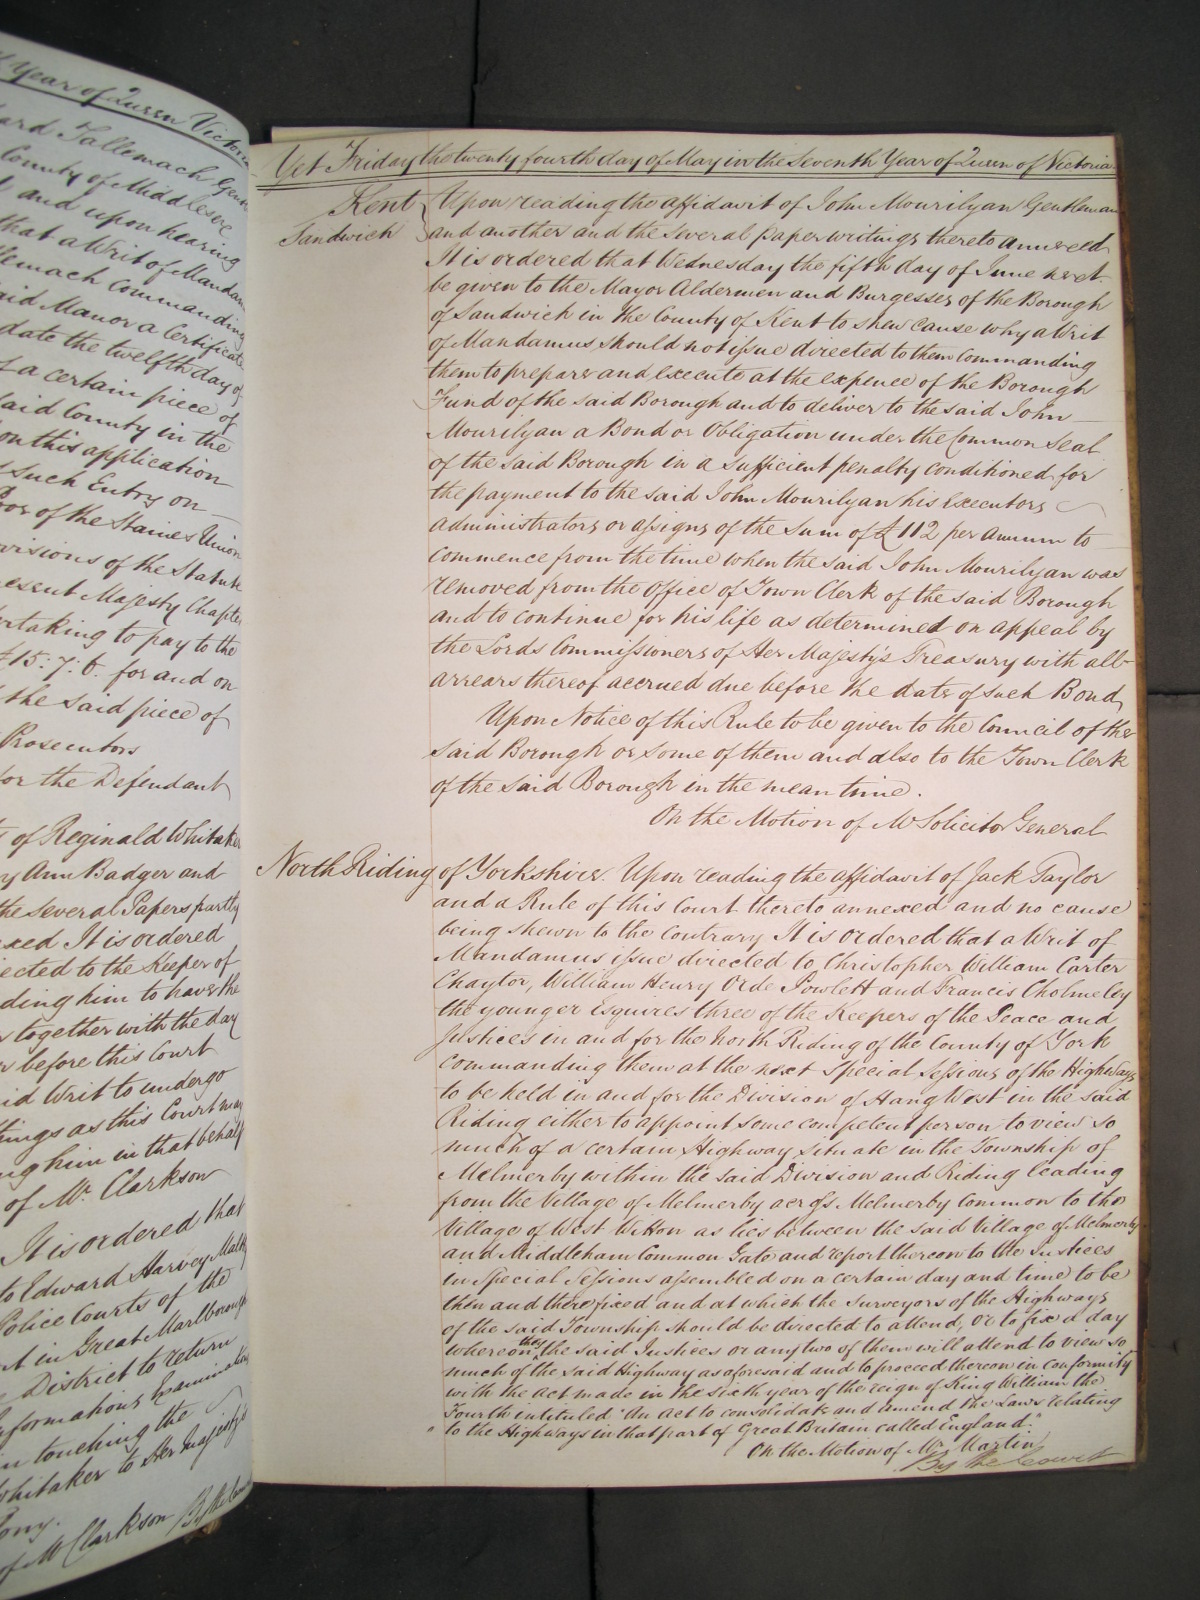 Year of Queen Victoria
ard Tallemach Gen
County of Middlesex
and upon hearing
that a Writ of Mandam
llemach commanding
said Manor a Certificate
date the twelfth day of
f a certain piece of
said County in the
on this application
d such Entry on
of the Staines Union
visions of the Statute
esent Majesty Chapter
rtaking to pay to the
£15: 7: 6. for and on
the said piece of
Prosecutors
for the Defendant
of Reginald Whitaker
y Ann Badger and
the several Papers partly
xed It is ordered
ected to the Keeper of
ding him to have the
together with the day
before this Court
id Writ to undergo
things as this Court may
ng him in that behalf
of Mr. Clarkson
It is ordered that
to Edward Harvey Maltby
Police Courts of the
at in Great Marlborough
District to return
nformations Examinations
n touching the
Whitaker to Her Majesty's
ony.
of Mr Clarkson By the Court
Yet Friday the twenty fourth day of May in the Seventh Year of Queen of Victoria
Kent Upon reading the affidavit of John Mourilyan Gentleman
Sandwich and another and the several paper writings thereto annexed
It is ordered that Wednesday the fifth day of June next
be given to the Mayor Aldermen and Burgesses of the Borough
of Sandwich in the County of Kent to shew cause why a Writ
of Mandamus should not issue directed to them commanding
them to prepare and execute at the expence of the Borough
Fund of the said Borough and to deliver to the said John
Mourilyan a Bond or Obligation under the Common Seal
of the said Borough in a sufficient penalty conditioned for
the payment to the said John Mourilyan his executors
administrators or assigns of the Sum of £112 per annum to
commence from the time when the said John Mourilyan was
removed from the Office of Town Clerk of the said Borough
and to continue for his life as determined on appeal by
the Lords Commissioners of Her Majesty's Treasury with all
arrears thereof accrued due before the date of such Bond
Upon Notice of this Rule to be given to the Council of the
said Borough or some of them and also to the Town Clerk
of the said Borough in the mean time.
On the Motion of Mr Solicitor General
North Riding of Yorkshire. Upon reading the affidavit of Jack Taylor
and a Rule of this Court thereto annexed and no cause
being shewn to the contrary It is ordered that a Writ of
Mandamus issue directed to Christopher William Carter
Chaytor, William Henry Orde Powlett and Francis Cholmeley
the younger Esquires three of the Keepers of the Peace and
Justices in and for the North Riding of the County of York
commanding them at the next Special Sessions of the Highways
to be held in and for the Division of Hang West in the said
Riding either to appoint some competent person to view so
much of a certain Highway situate in the Township of
Melmerby within the said Division and Riding leading
from the Village of Melmerby across Melmerby Common to the
Village of West Witton as lies between the said Village of Melmerby
and Middleham Common Gate and report thereon to the Justices
in Special Sessions assembled on a certain day and time to be
then and there fixed and at which the surveyors of the Highways
of the said Township should be directed to attend, Or to fix a day
whereon they the said Justices or any two of them will attend to view so
much of the said Highway as aforesaid and to proceed thereon in conformity
with the Act made in the sixth year of the reign of King William the
Fourth intituled "An Act to consolidate and amend the Laws relating
" to the Highways in that part of Great Britain called England."
On the Motion of Mr. Martin
By the Court